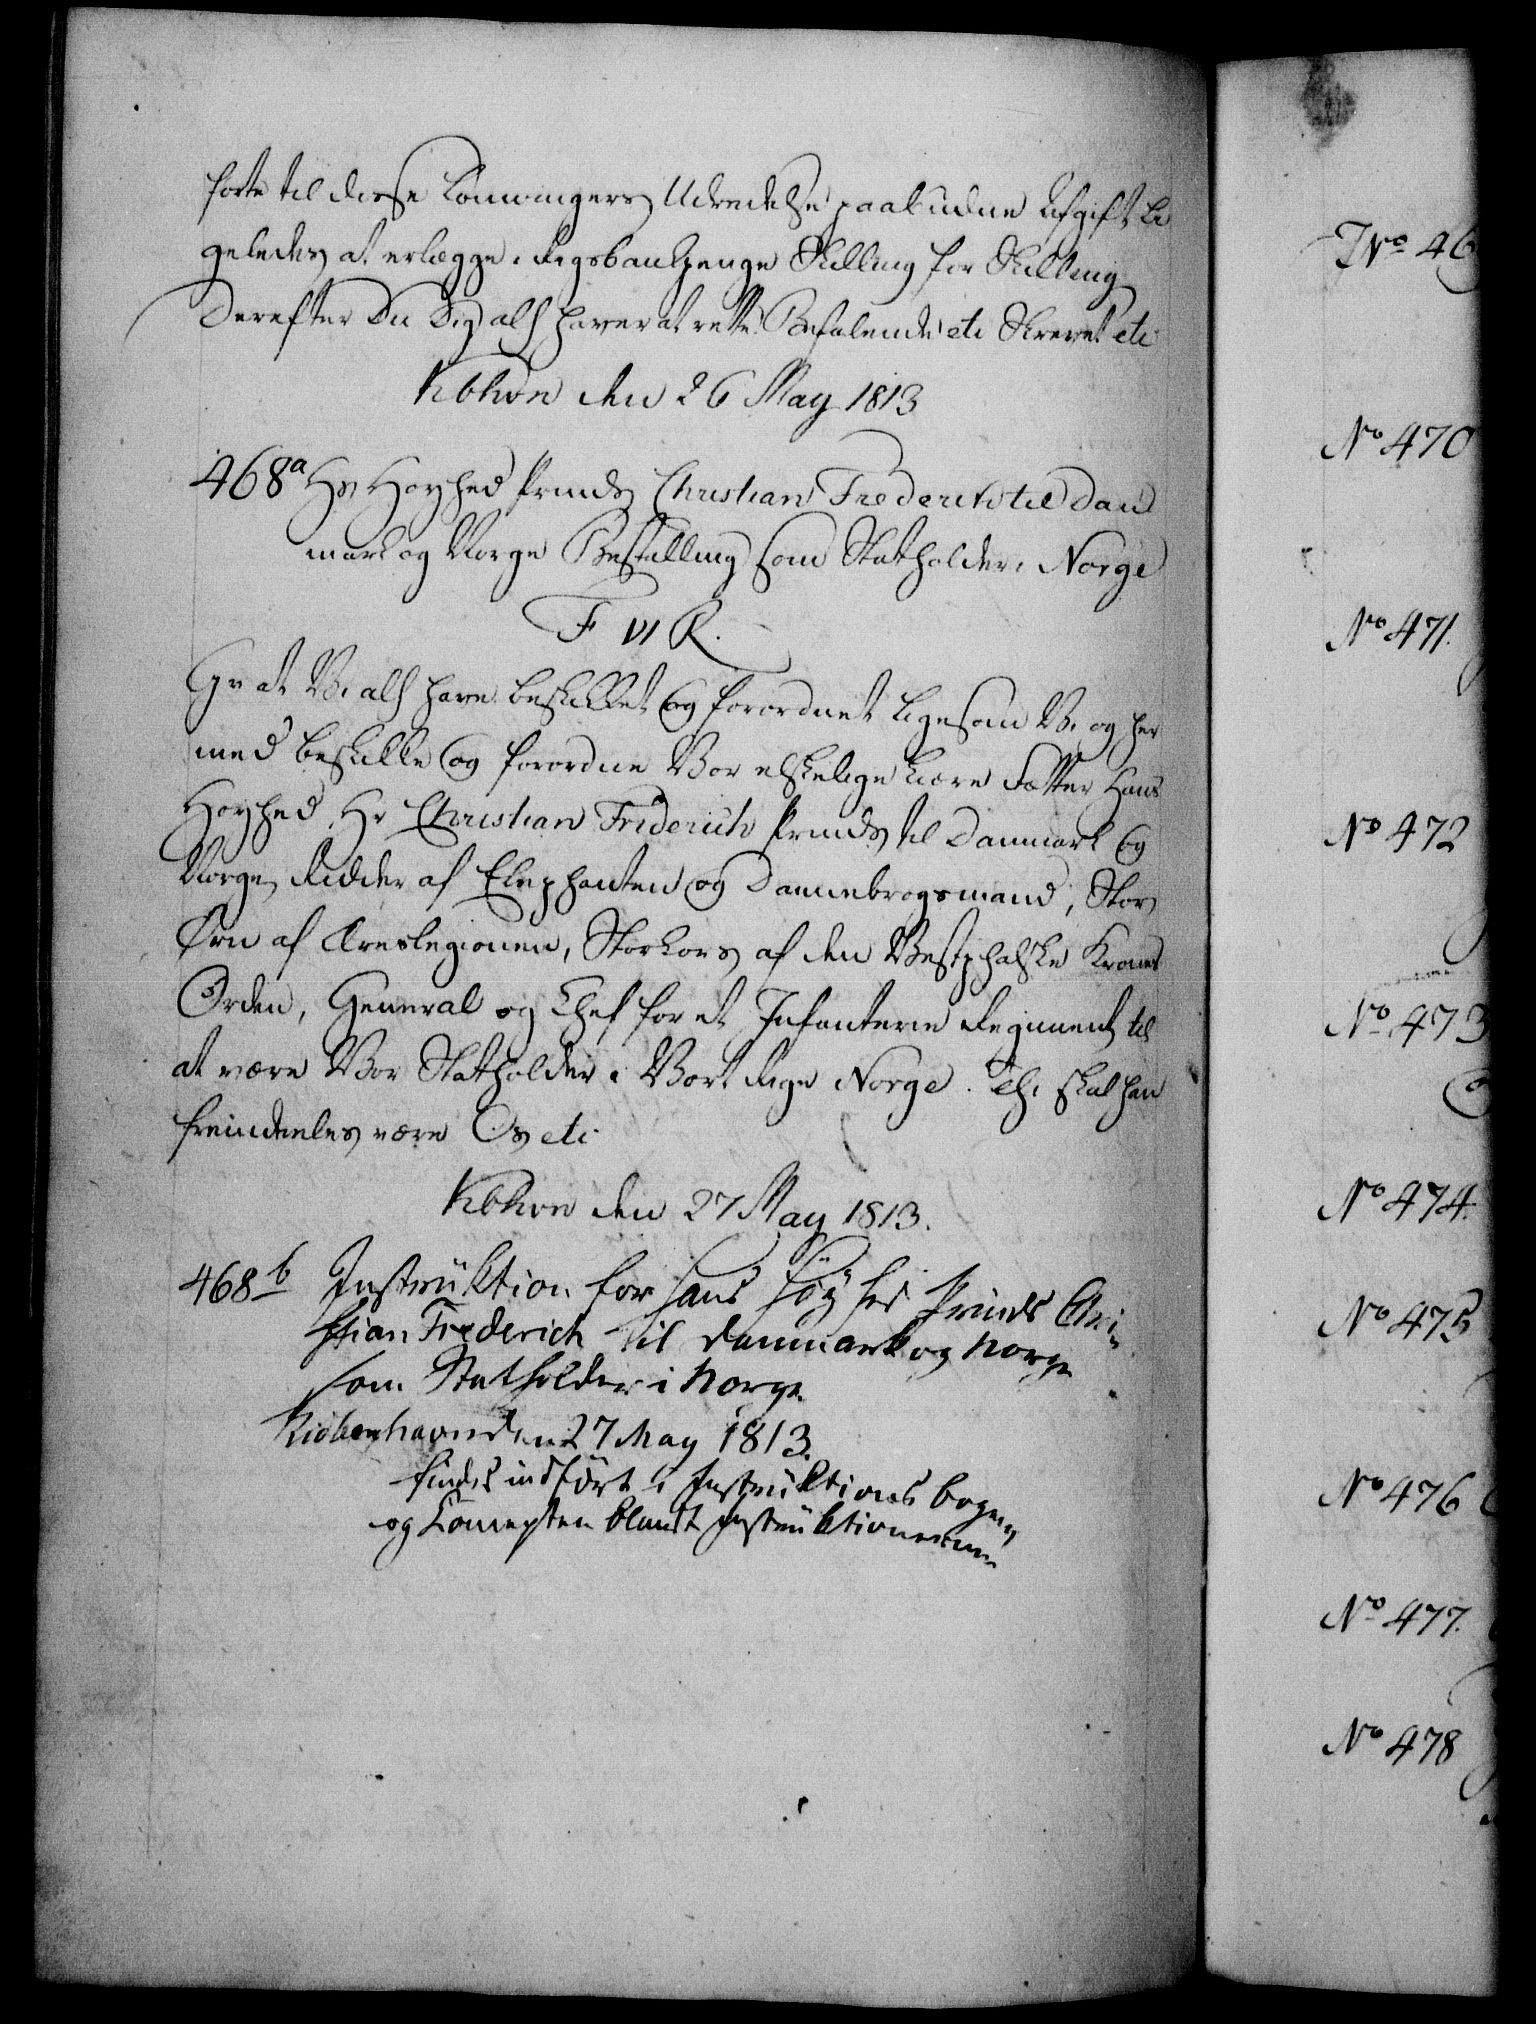 forte til disse Lønningers Udredelse paabudne Afgift li
geledes at erlægge i Rigsbankpenge Skilling for Skilling
Derefter Du Dig alh haver at rette. Befalende etc Skrevet etc
Kbhvn den 26 May 1813
468a Hs Høyhed Prinds Christian Frederiks til Dan
mark og Norge Bestalling som Statholder i Norge
F VI R.
Gv at Vi alh have beskikket og forordnet ligesom Vi og her
med beskikke og forordne Vor elskelige kiere Fætter Hans
Høyhed Hr Christian Friderich Prinds til Danmark og
Norge, Ridder af Elephanten og Dannebrogsmand, Stor
Ørn af Æreslegionen, Storkors af den Westphalske Krones
Orden, General og Chef for et Infanterie Regiment til
at være Vor Statholder i Vort Rige Norge. Thi skal han
fremdeeles være Os etc
Kbhvn den 27 May 1813.
468b Instruktion for Hans Høyhed Prinds Chri-
stian Frederich til Danmark og Norge
som Statholder i Norge
Kiøbenhavn den 27 May 1813.
findes indført i Instruktions bogen
og Concepten blandt Instruktionerne
No 46
No 470
No 471.
No 472
No 473
No 474.
No 475
No 476
No 477.
No 478